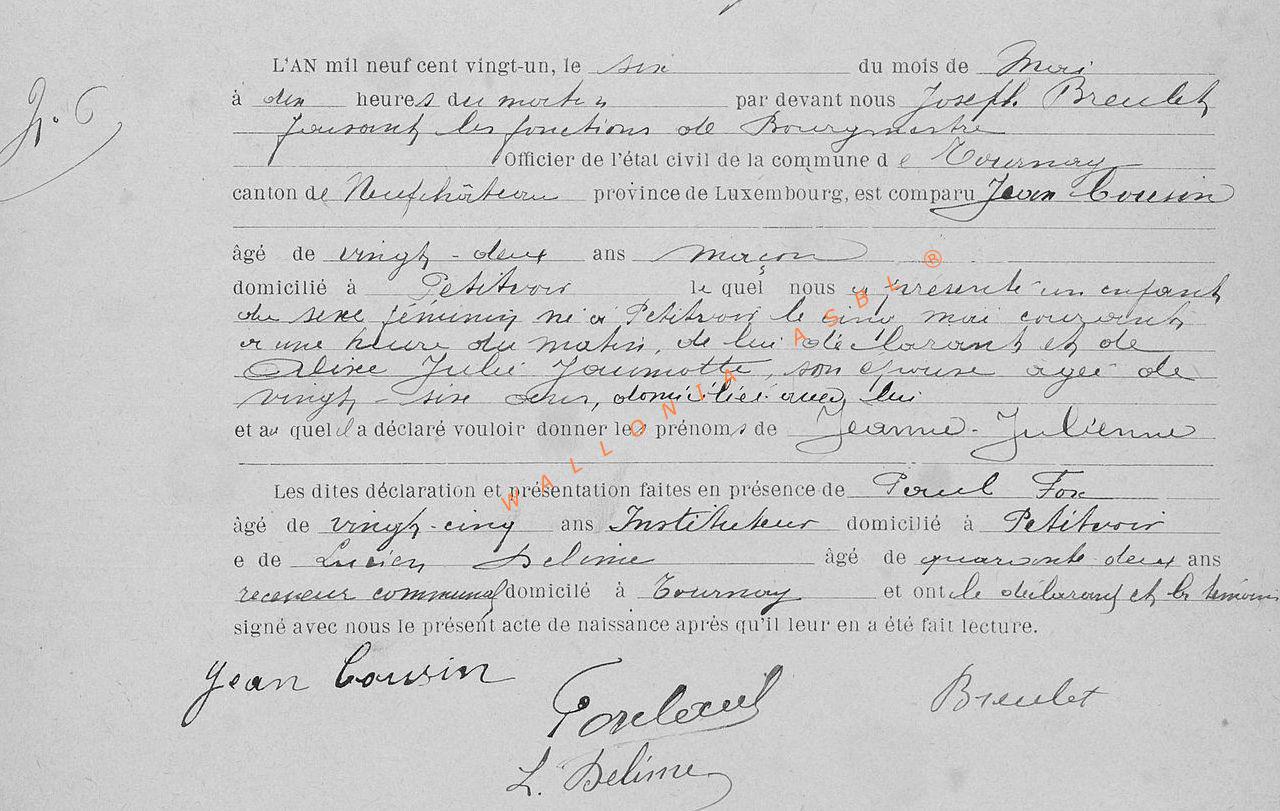 N. 6
L'AN mil neuf cent vingt-un, le six du mois de Mai
à dix heures du matin par devant nous Joseph Breulet
faisant les fonctions de Bourgmestre
Officier de l'état civil de la commune de Tournay
canton de Neufchâteau province de Luxembourg, est comparu Jean Cousin
âgé de vingt-deux ans maçon
domicilié à Petitvoir le quel nous a présenté un enfant
du sexe féminin né à Petitvoir le cinq mai courant
à une heure du matin, de lui déclarant et de
Alixe Julie Jaumotte, son épouse agée de
vingt-six ans, domiciliée avec lui
et au quel il a déclaré vouloir donner les prénoms de Jeanne-Julienne
Les dites déclaration et présentation faites en présence de Paul Fox
âgé de vingt-cinq ans Instituteur domicilié à Petitvoir
e de Lucien Delime âgé de quarante-deux ans
receveur communal domicilié à Tournay et ont le déclarant et les témoins
signé avec nous le présent acte de naissance après qu'il leur en a été fait lecture.
Jean Cousin
Fox Paul
Breulet
L. Delime
WALLONIA ASBL ®